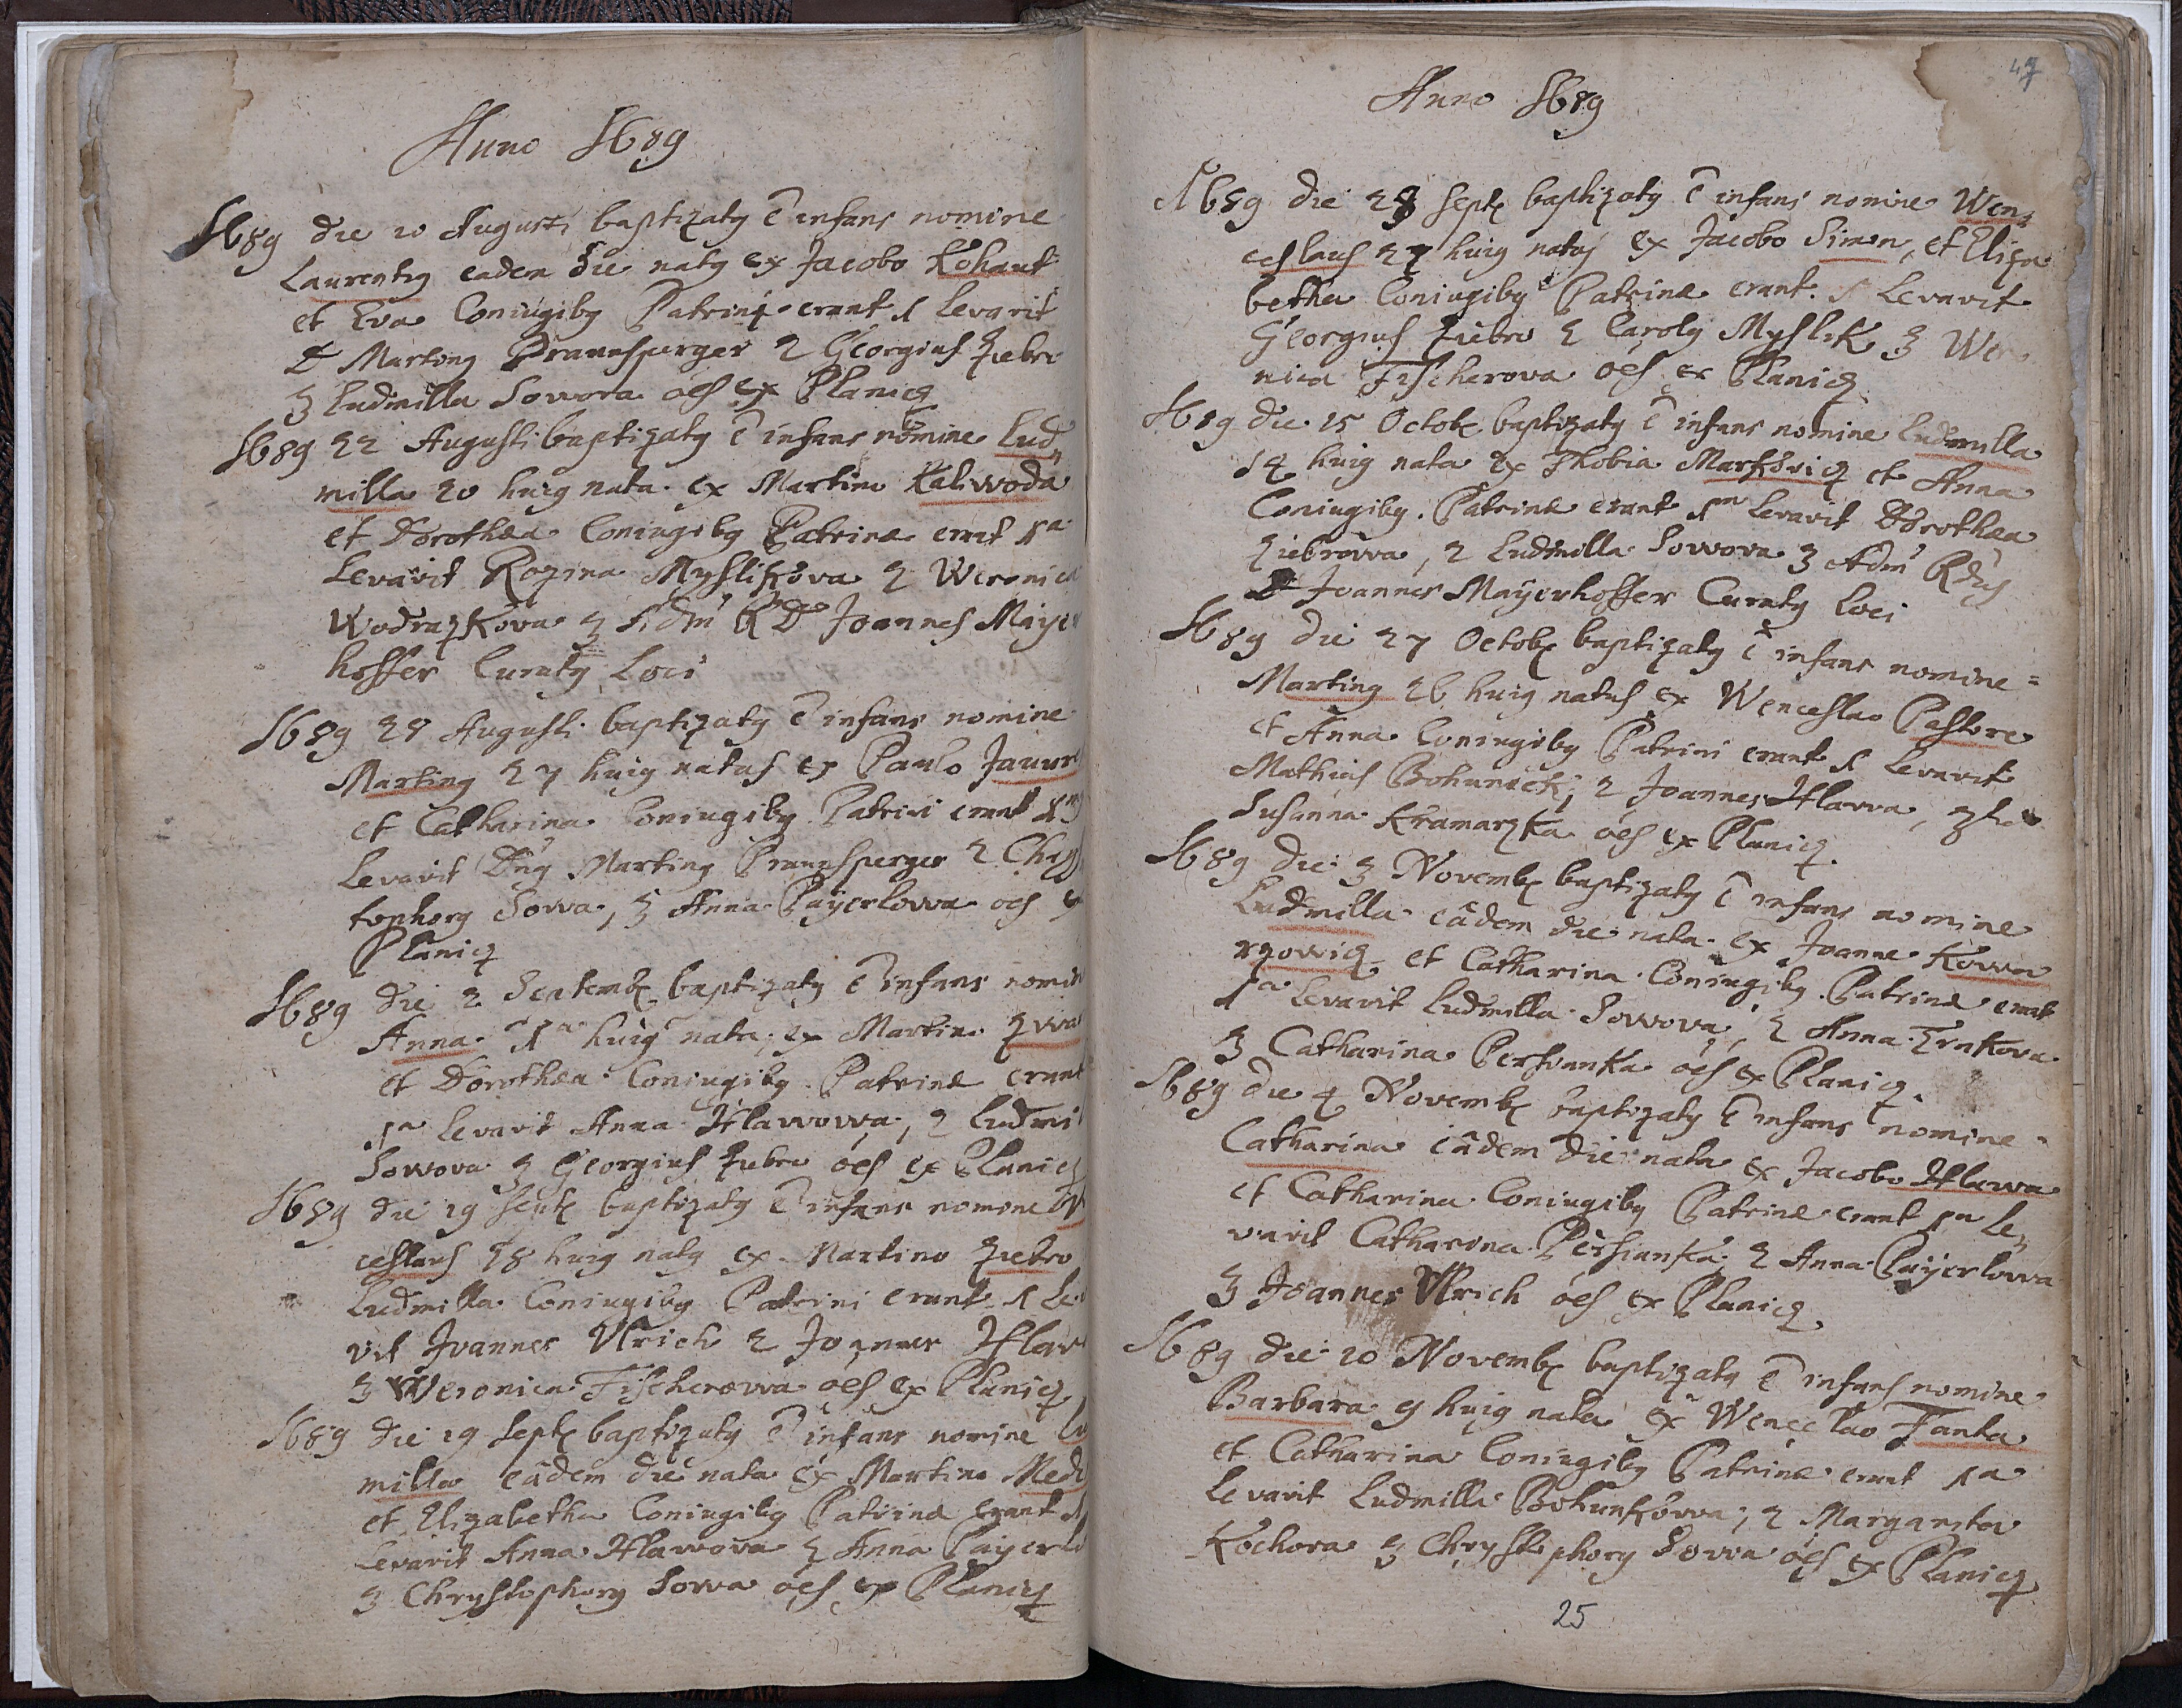 Anno 1689
1689 die 10 Augusti baptizatq ē infans nomine
Laurentq eadem die natq ex Jacobo Kohaut
et Eva Coniugibq Patrini erant 1 Levavit
D Martinq Praunsperger 2 Georgius Ziebro
3 Ludmilla Sowova oēs ex Planicz
1689 22 Augusti baptizatq ē infans nomine Lud„
milla 20 huiq nata ex Martino Kaliwoda
et Dorothea Coniugibq Patrinæ erāt 1a
Levavit Rozina Myslikova 2 Weronica
Wodrazkova 3 Adm̄ R D Joannes Mayer
hoffer Curatq Loci
1689 28 Augusti baptizatq ē infans nomine
Martinq 27 huiq natus ex Paulo
et Catharina Coniugibq Patrini erant
Levavit Dn̄q Martinq Praunsperger 2
tophorq Sowa, 3 Anna Payerlowa oēs ex
Planicz
1689 die 2 Septemb baptizatq ē infans nomine
Anna 1a huiq nata, ex Martino
et Dorothea Coniugibq Patrinæ erant
1a Levavit Anna Hlawowa, 2
Sowova 3 Georgius Ziebro oēs ex Planicz
1689 die 19 Sept baptizatq ē infans nomine
ceslaus 18 huiq natq ex Martino Ziebro
Ludmilla Coniugibq Patrini erant 1 Le
vit Joannes Ulrich 2 Joannes
3 Weronica Fischerowa oēs ex Planicz
1689 die 19 Sept baptizatq ē infans nomine
milla eâdem die nata ex Martino
et Elizabetha Coniugibq Patrinæ erant
Levavit Anna Hlawova 2 Anna
3 Chrystophorq Sowa oēs ex Planicz
47
Anno 1689
1689 die 28 Sept baptizatq ē infans nomine Wen„
ceslaus 27 huiq natq ex Jacobo Simon, et Eliza
betha Coniugibq Patrinæ erant 1 Levavit
Georgius Ziebro 2 Carolq Myslik 3 Wero
nica Fischerova oēs ex Planicz
1689 die 15 Octob baptizatq ē infans nomine Ludmilla
14 huiq nata ex Thobia Markovicz et Anna
Coniugibq. Patrinæ erant 1 Levavit Dorothea
Ziebrowa, 2 Ludmilla Sowova 3 Adm̄ Rdq
D Joannes Mayerhoffer Curatq Loci
1689 die 27 Octob baptizatq ē infans nomine
Martinq 26 huiq natus ex Wenceslao Pastore
et Anna Coniugibq Patrini erant 1 Levavit
Mathias Bohunick, 2 Joannes Hlawa, 3
Susanna Kramarzka oēs ex Planicz.
1689 die 3 Novemb baptizatq ē infans nomine
Ludmilla eâdem die nata ex Joanne Kowa
rzowicz et Catharina Coniugibq Patrinæ erant
1a Levavit Ludmilla Sowova, 2 Anna
3 Catharina Persianka oēs ex Planicz.
1689 die 4 Novemb baptizatq ē infans nomine
Catharina eâdem die nata ex Jacobo Hlawa
et Catharina Coniugibq Patrinæ erant 1a Le„
vavit Catharina Persianka, 2 Anna Payerlowa
3 Joannes Ulrich oēs ex Planicz
1689 die 10 Novemb baptizatq ē infans nomine
Barbara 9 huiq nata ex Wenceslao Fanta
et Catharina Coniugibq Patrinæ erant 1a
Levavit Ludmilla Bohunkowa, 2 Margareta
Kochova 3 Chrystophorq Sowa oēs ex Planicz
25